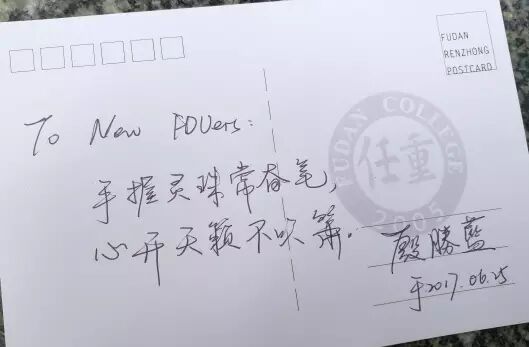 FUDAN
RENZHONG
POSTCARD
To New FDUers:
手握灵珠常奋笔,
心开天籁不吹箫.
FUDAN COLLEGE
任重
2005
殷勝藍
于2017.06.25